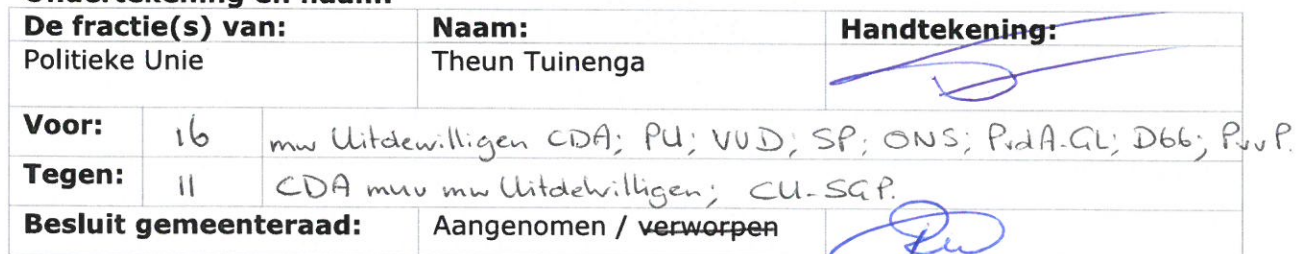 De fractie(s) van: Naam: Handtekening:
Politieke Unie Theun Tuinenga
Voor: 16 mw Uitdewilligen CDA; PU; VVD; SP; ONS; PvdA-GL; D66; PvvP.
Tegen: 11 CDA muv mw Uitdewilligen; CU-SGP.
Besluit gemeenteraad: Aangenomen / verworpen